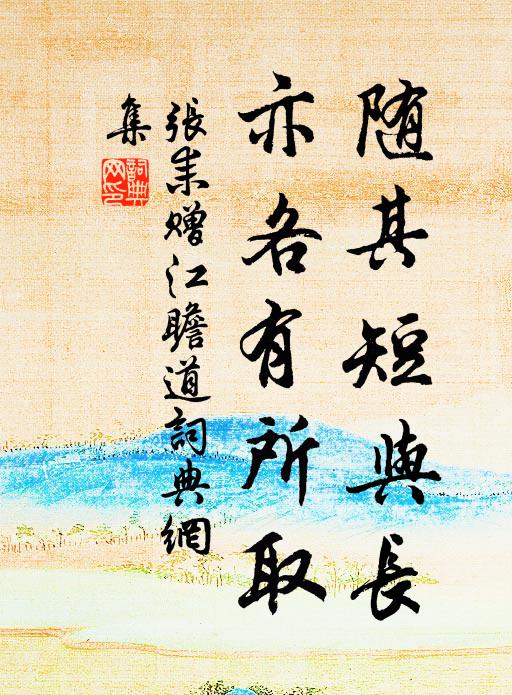 随其短與長
亦各有所取
張耒贈江瞻道詞典網
集
詞典
网印